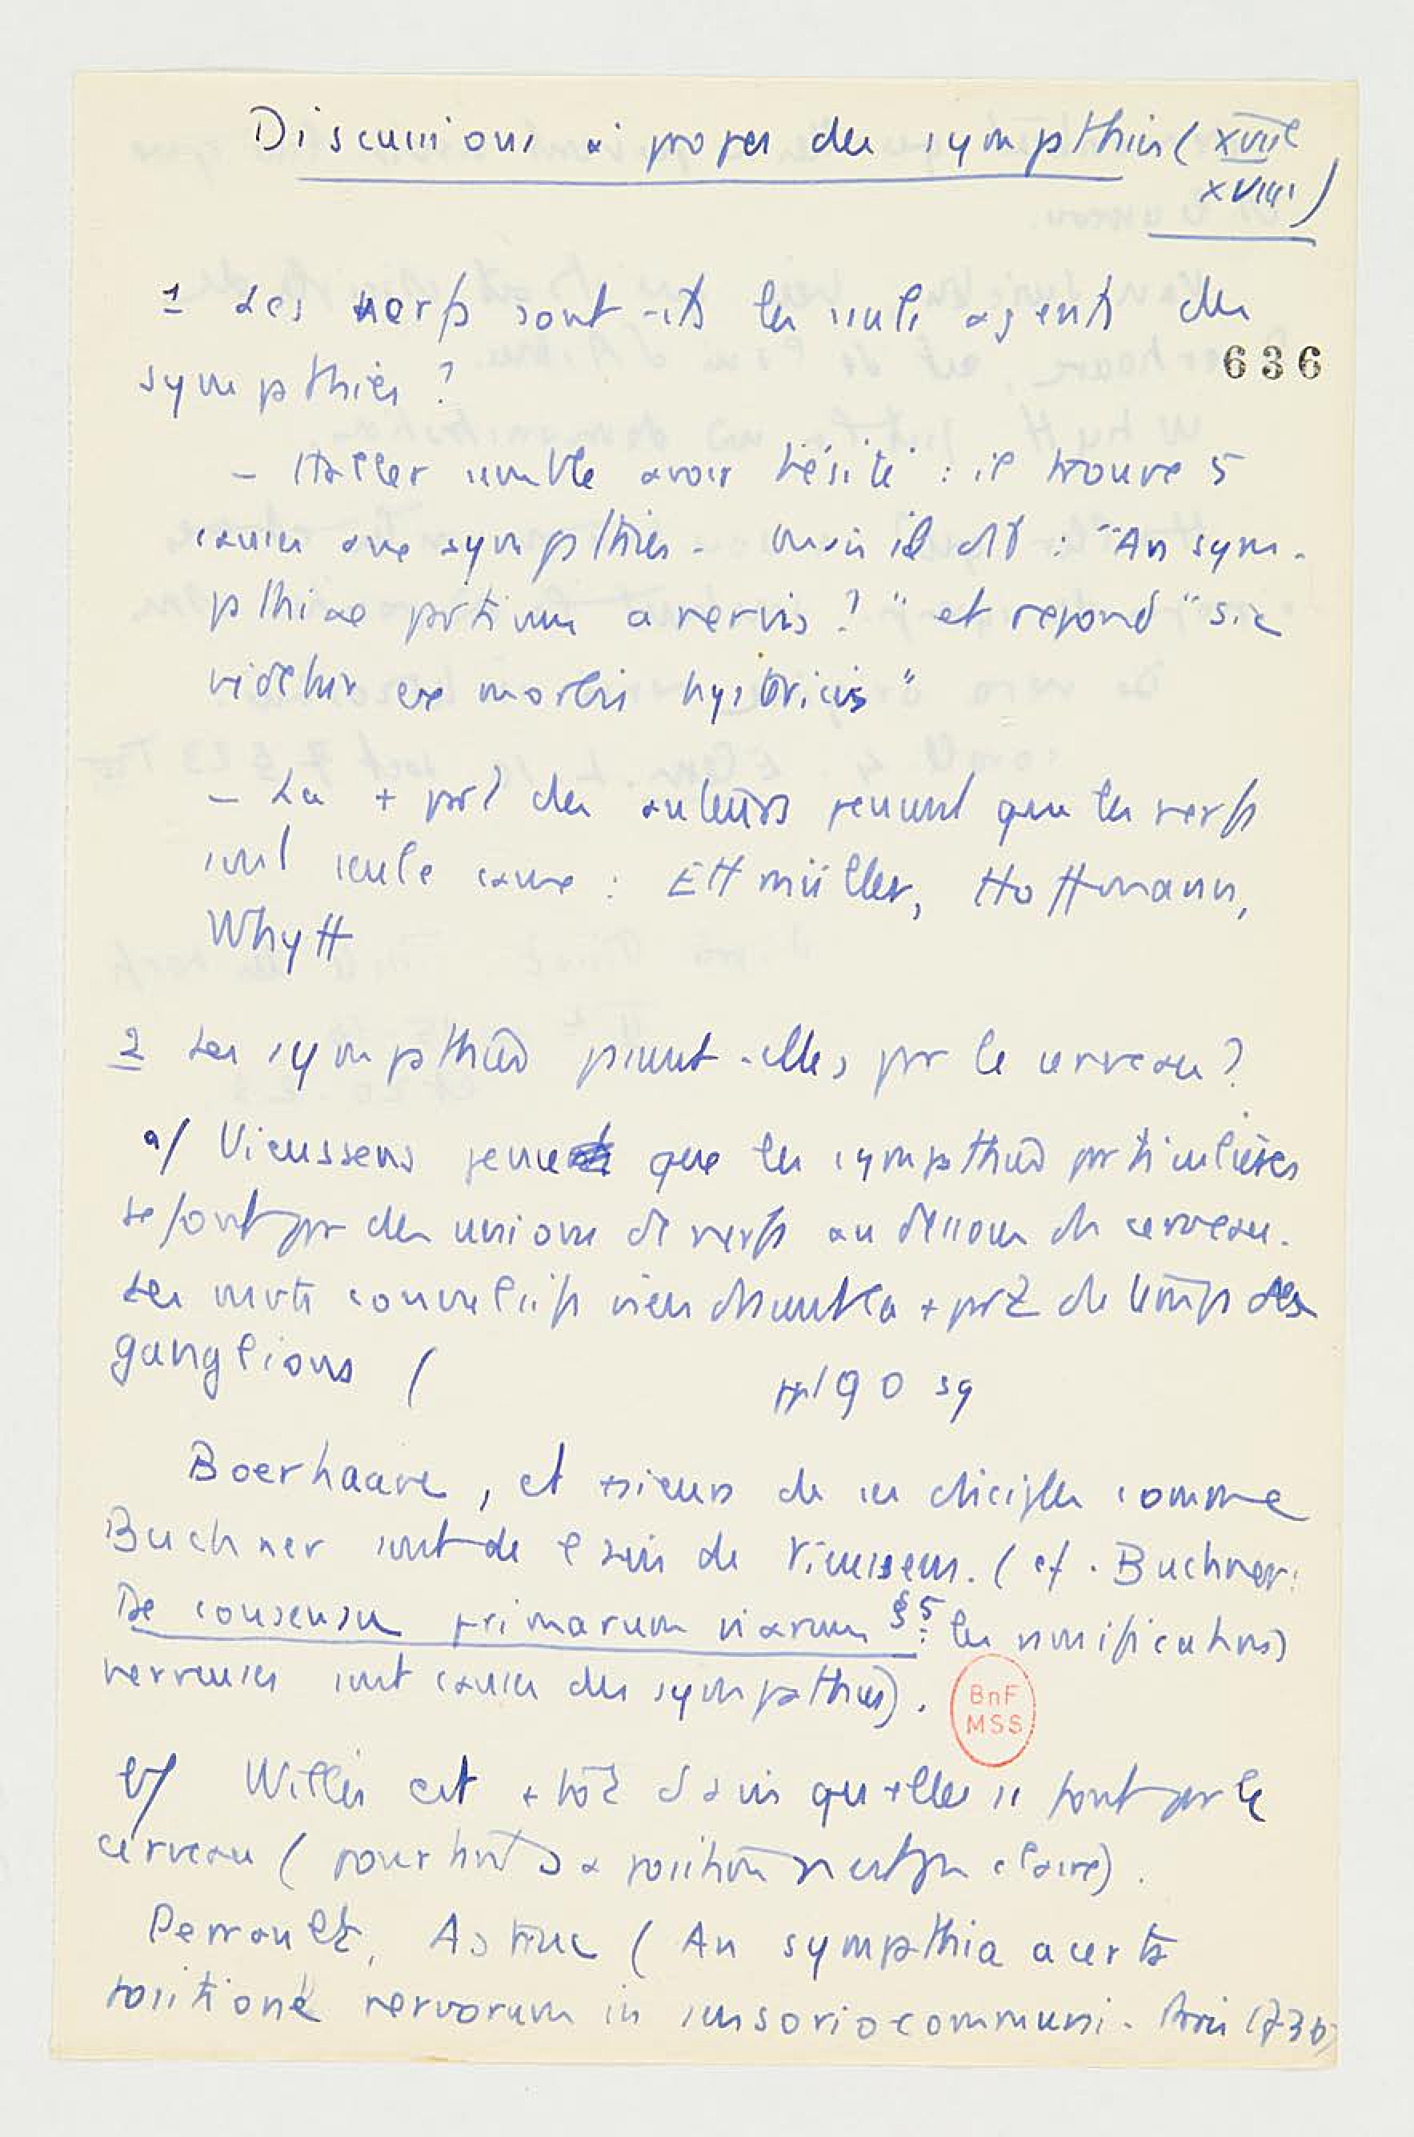 Discussions à propos des sympathies (XVIIe
XVIIIe)
1 Les nerfs sont-ils les seuls agents des
636
sympathies ?
- Haller semble avoir hésité : il trouve 5
causes aux sympathies - mais il dit : "An sym-
pathiae partium a nervis ? " et répond "sic
videtur ex morbis hystericis"
- La + part des auteurs pensent que les nerfs
sont seule cause : Ettmüller, Hoffmann,
Whytt
2 Les sympathies passent-elles par le cerveau ?
a/ Vieussens pense que les sympathies particulières
se font par des unions de nerfs au dessous du cerveau.
Les mvts convulsifs viendraient la + part du temps des
ganglions ( pp 190 sq
Boerhaave, et +sieurs de ses disciples comme
Buchner sont de l'avis de Vieussens. (cf. Buchner :
De consensu primarum viarum §5 : les ramifications
nerveuses sont causes des sympathies).
b/ Willis est + tôt d'avis qu'elles se font par le
cerveau (pourtant sa position n'est pas claire).
Perrault, Astruc (An sympathia a certa
positione nervorum in sensorio communi. Paris 1736)
BnF
MSS